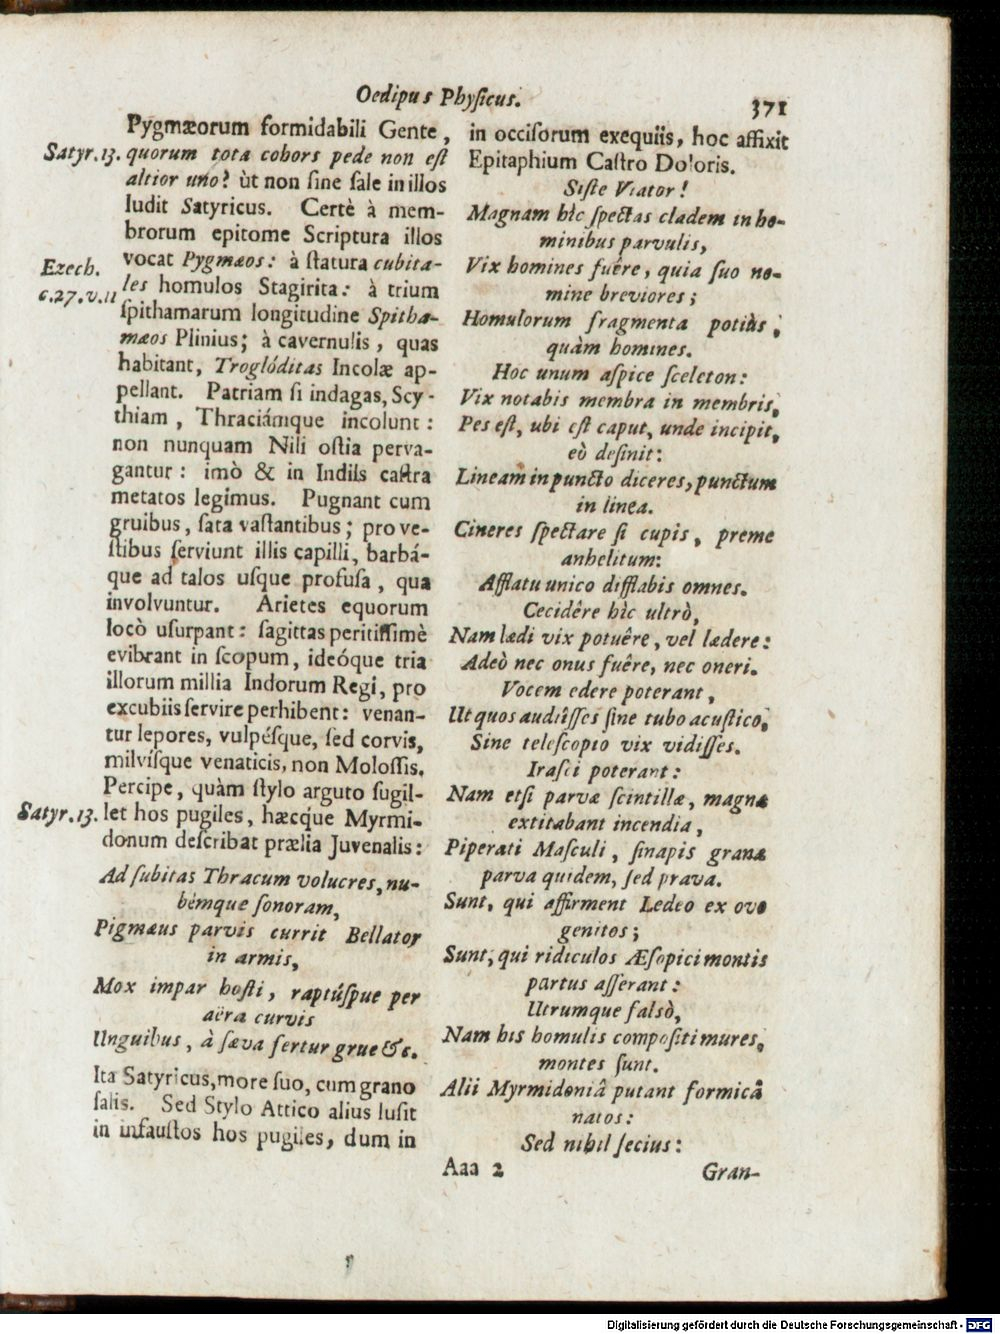 Oedipus Phyſicus.
371
Pygmæorum formidabili Gente,
Satyr. 13. quorum tota cohors pede non eſt
altior uno? ùt non ſine ſale in illos
ludit Satyricus. Certè à mem-
brorum epitome Scriptura illos
Ezech. vocat Pygmæos: à ſtatura cubita-
c. 27. v. 11 les homulos Stagirita: à trium
ſpithamarum longitudine Spitha-
mæos Plinius; à cavernulis, quas
habitant, Troglóditas Incolæ ap-
pellant. Patriam ſi indagas, Scy-
thiam, Thraciámque incolunt:
non nunquam Nili oſtia perva-
gantur: imò & in Indiis caſtra
metatos legimus. Pugnant cum
gruibus, ſata vaſtantibus; pro ve-
ſtibus ſerviunt illis capilli, barbá-
que ad talos uſque profuſa, qua
involvuntur. Arietes equorum
locò uſurpant: ſagittas peritiſſimè
evibrant in ſcopum, ideóque tria
illorum millia Indorum Regi, pro
excubiis ſervire perhibent: venan-
tur lepores, vulpéſque, ſed corvis,
milvíſque venaticis, non Moloſſis.
Percipe, quàm ſtylo arguto ſugil-
Satyr. 13. let hos pugiles, hæcq́ue Myrmi-
donum deſcribat prælia Juvenalis:
Ad ſubitas Thracum volucres, nu-
bémque ſonoram,
Pigmæus parvis currit Bellator
in armis,
Mox impar hoſti, raptúſpue per
aëra curvis
Unguibus, à ſæva fertur grue &c.
Ita Satyricus, more ſuo, cum grano
ſalis. Sed Stylo Attico alius luſit
in infauſtos hos pugiles, dum in
in occiſorum exequiis, hoc affixit
Epitaphium Caſtro Doloris.
Siſte Viator!
Magnam hìc ſpectas cladem in ho-
minibus parvulis,
Vix homines fuêre, quia ſuo no-
mine breviores;
Homulorum fragmenta potiùs,
quàm homines.
Hoc unum aſpice ſceleton:
Vix notabis membra in membris,
Pes eſt, ubi eſt caput, unde incipit,
eò deſinit:
Lineam in puncto diceres, punctum
in linea.
Cineres ſpectare ſi cupis, preme
anhelitum:
Afflatu unico difflabis omnes.
Cecidêre hìc ultrò,
Nam lædi vix potuêre, vel lædere:
Adeò nec onus fuêre, nec oneri.
Vocem edere poterant,
Ut quos audiîſſes ſine tubo acuſtico,
Sine teleſcopio vix vidiſſes.
Iraſci poterant:
Nam etſi parvæ ſcintillæ, magna
extitabant incendia,
Piperati Maſculi, ſinapis grana
parva quidem, ſed prava.
Sunt, qui affirment Ledeo ex ovo
genitos;
Sunt, qui ridiculos Æſopici montis
partus aſſerant:
Utrumque falsò,
Nam his homulis compoſiti mures,
montes ſunt.
Alii Myrmidoniâ putant formicâ
natos:
Sed nihil ſecius:
Aaa 2
Gran-
Digitalisierung gefördert durch die Deutsche Forschungsgemeinschaft - DFG